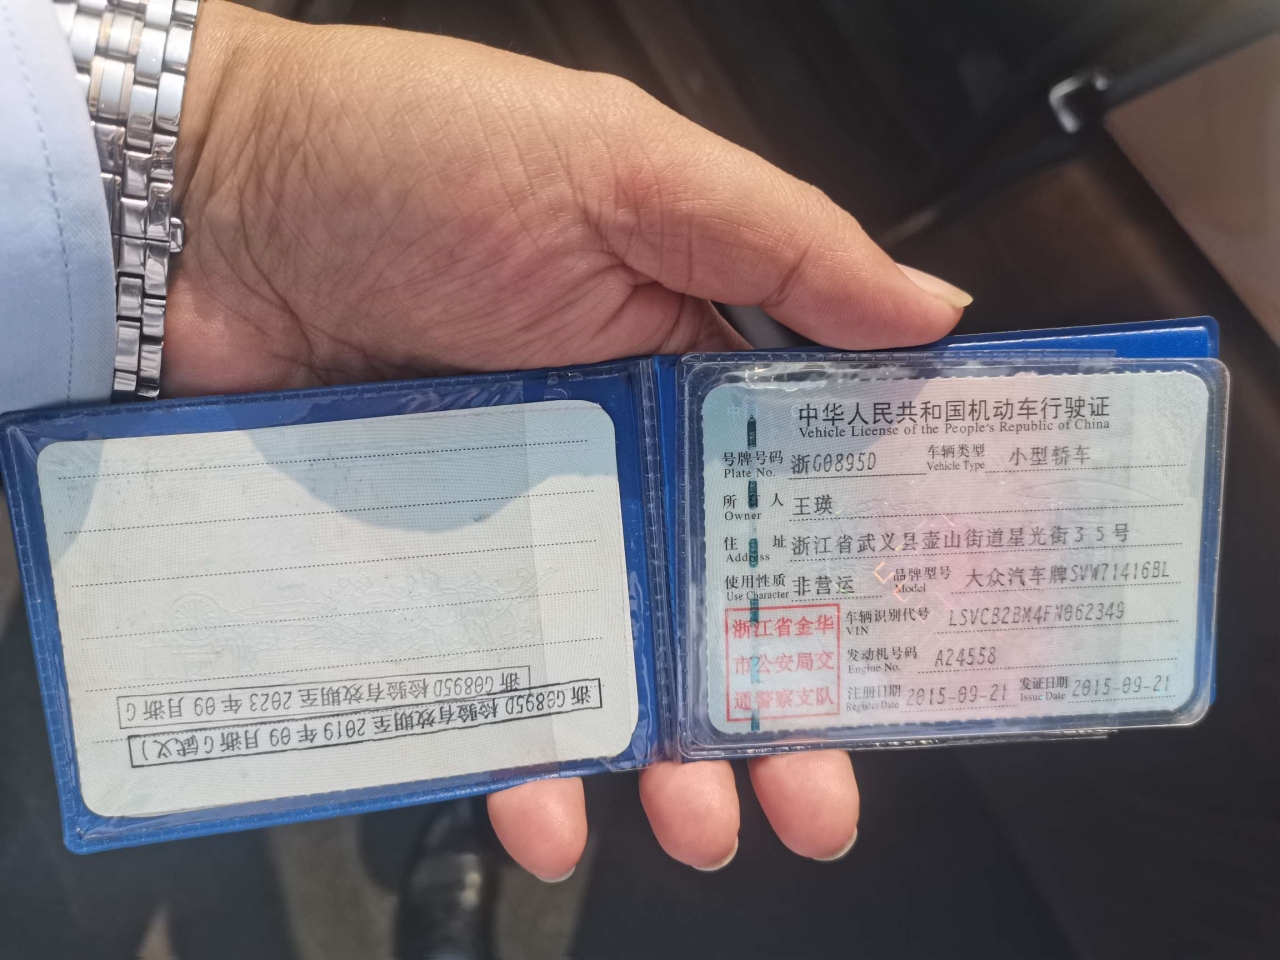 浙G0895D 检验有效期至 2023 年 09 月浙 G
浙 G0895D 检验有效期至 2019 年 09 月浙 G(武义)
中华人民共和国机动车行驶证
Vehicle License of the People's Republic of China
号牌号码 浙G0895D 车辆类型 小型轿车
Plate No. Vehicle Type
所有人 王瑛
Owner
住址 浙江省武义县壶山街道星光街35号
Address
使用性质 非营运 品牌型号 大众汽车牌SVW71416BL
Use Character Model
浙江省金华
市公安局交
通警察支队
车辆识别代号 LSVCB2BM4FN062349
VIN
发动机号码 A24558
Engine No.
注册日期 2015-09-21 发证日期 2015-09-21
Register Date Issue Date